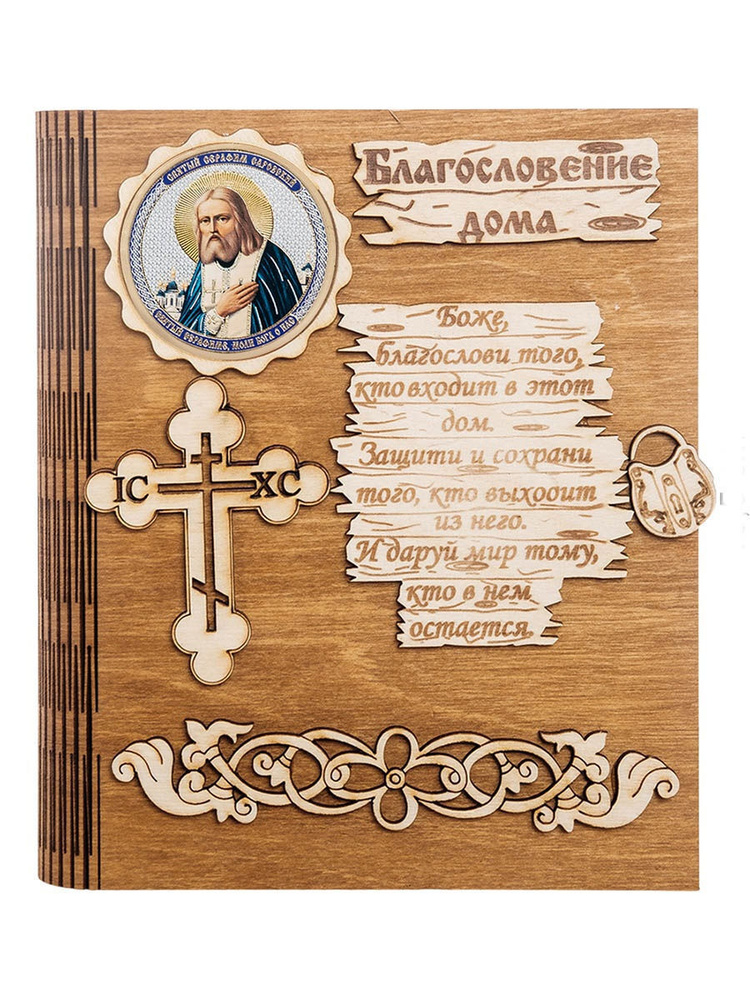 СВЯТЫЙ СЕРАФИМ САРОВСКИЙ
СВЯТЫЙ СЕРАФИМЕ, МОЛИ БОГА О НАС
Благословение
дома
Боже,
благослови того,
кто входит в этот
дом.
Защити и сохрани
того, кто выходит
из него.
И даруй мир тому,
кто в нем
остается
IC XC